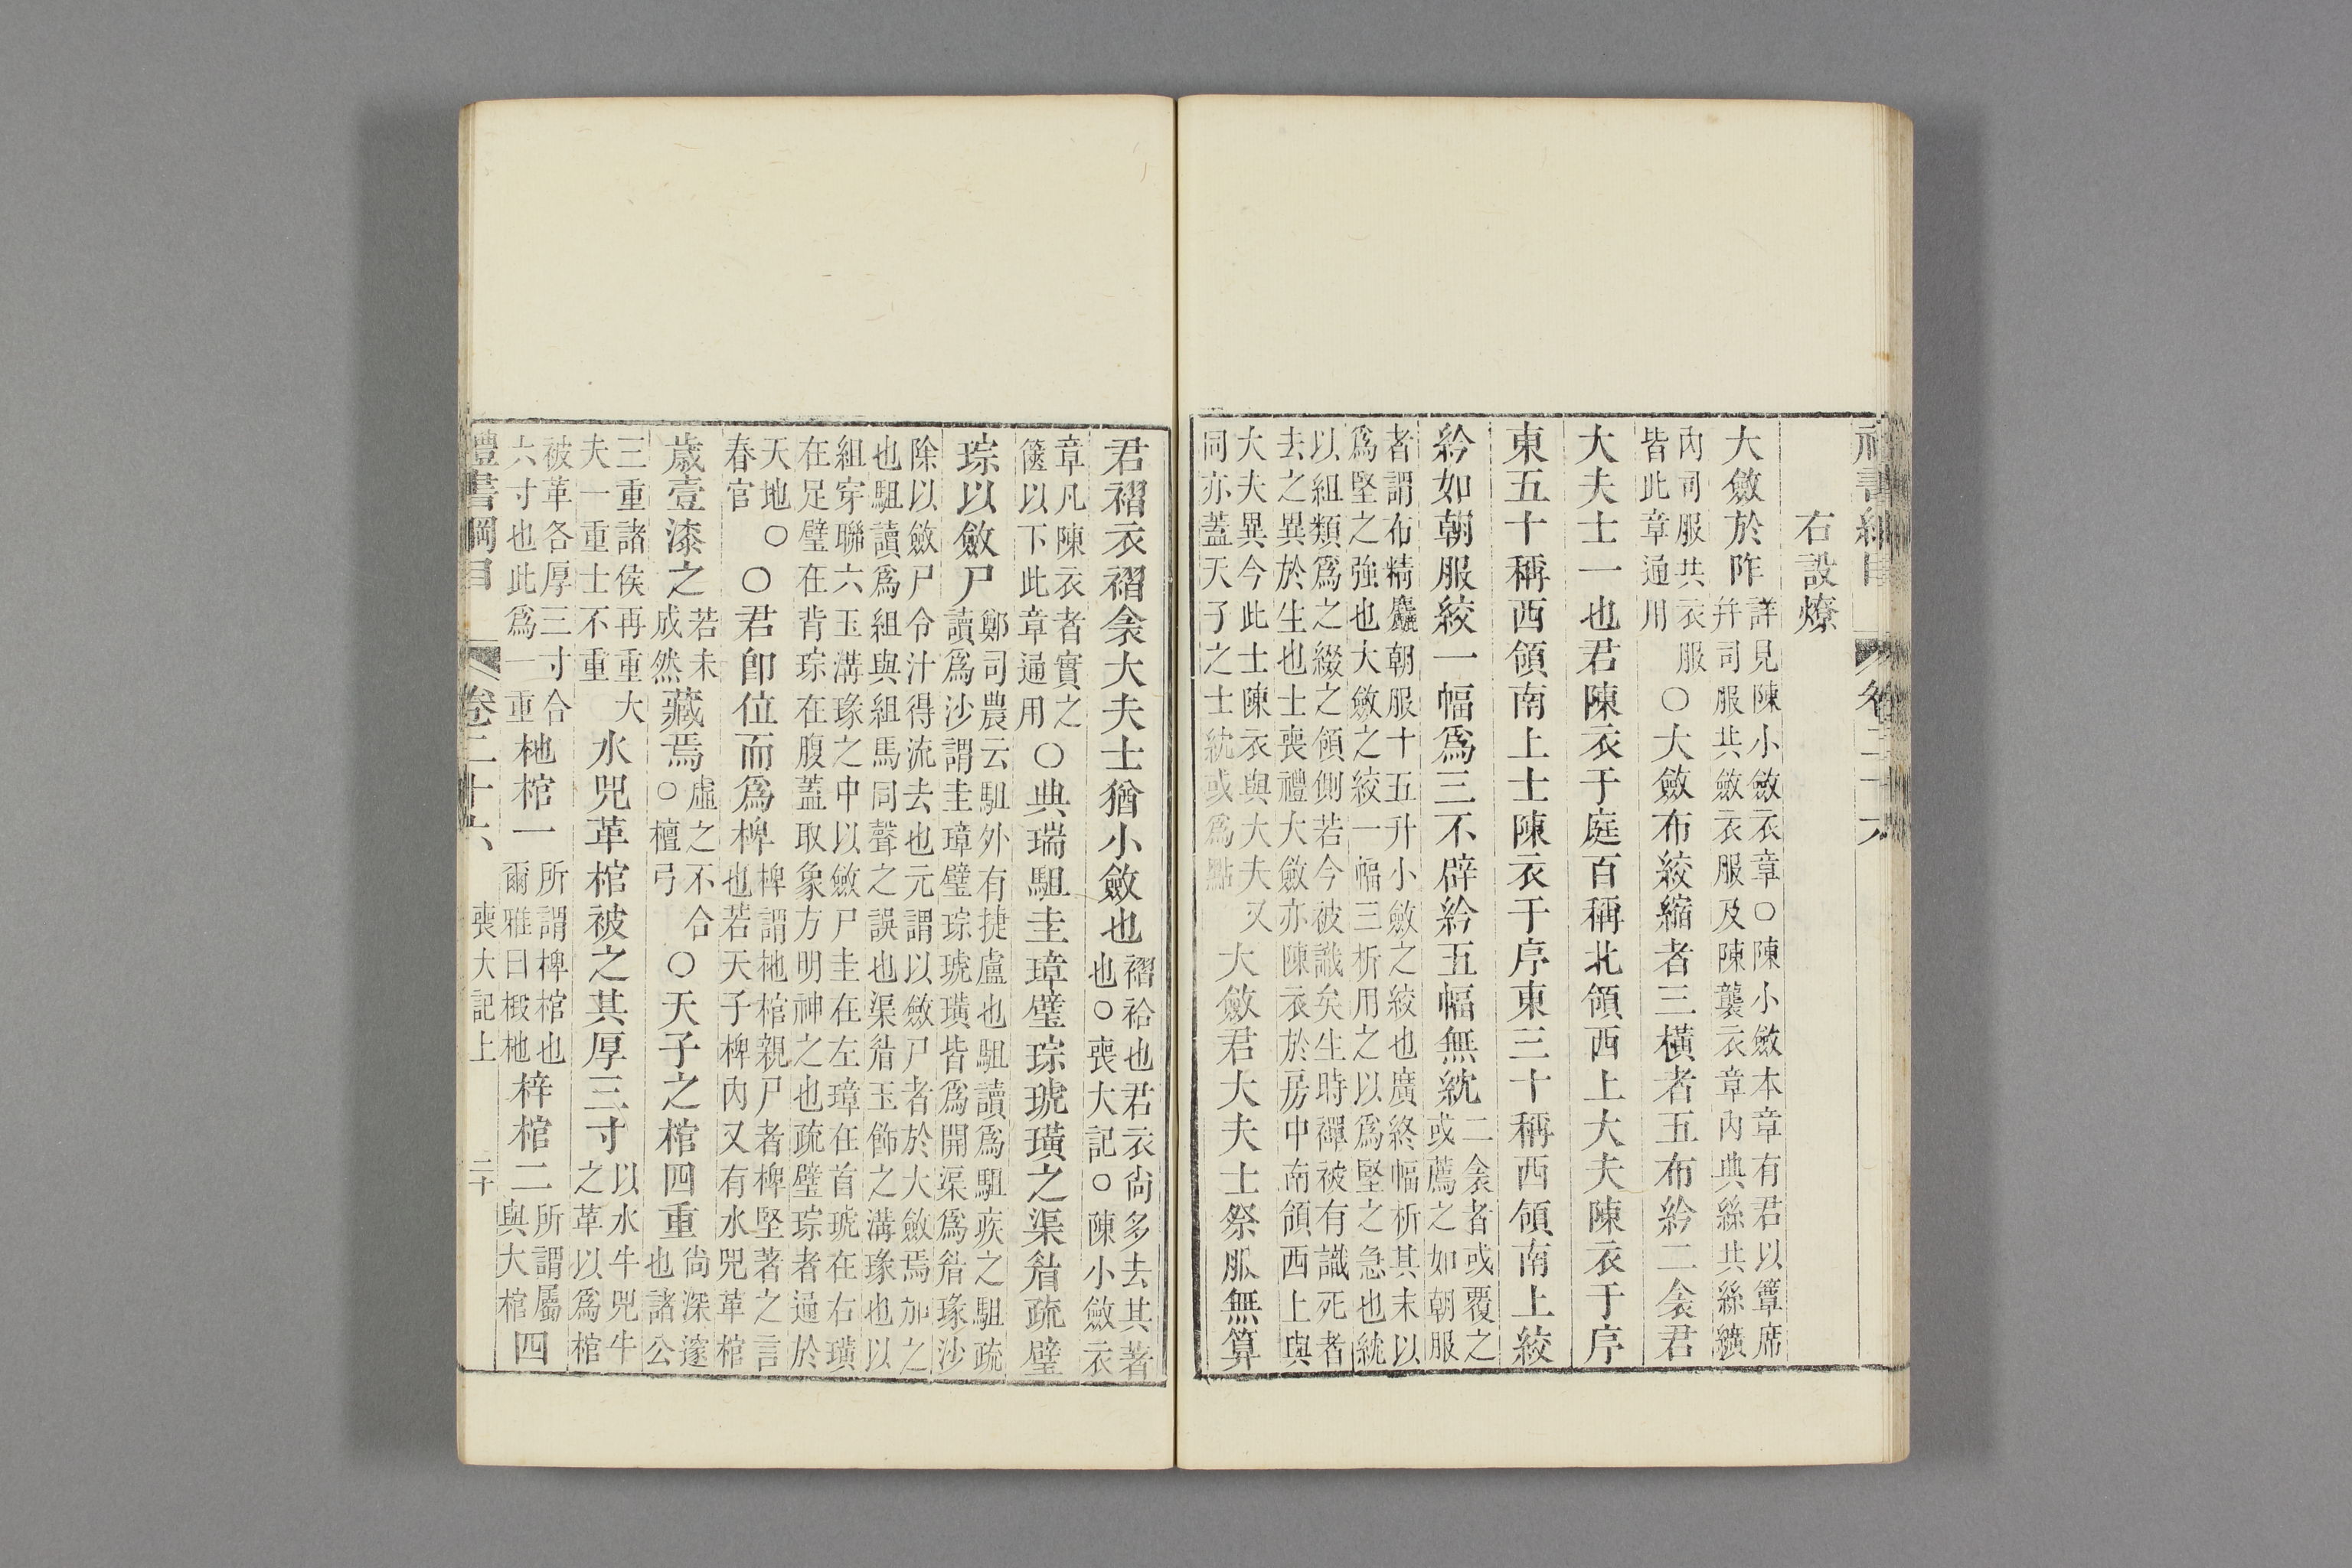 禮書綱目 卷二十六
右設燎
大斂於阼詳見陳小斂衣章○陳小斂本章有君以簟席
幷司服共斂衣服及陳襲衣章內典絲共絲纊
內司服共衣服
皆此章通用○大斂布絞縮者三橫者五布紟二衾君
大夫士一也君陳衣于庭百稱北領西上大夫陳衣于序
東五十稱西領南上士陳衣于序東三十稱西領南上絞
紟如朝服絞一幅爲三不辟紟五幅無紞二衾者或覆之
或薦之如朝服
者謂布精麤朝服十五升小斂之絞也廣終幅析其末以
爲堅之強也大斂之絞一幅三析用之以爲堅之急也紞
以組類爲之綴之領側若今被識矣生時襌被有識死者
去之異於生也士喪禮大斂亦陳衣於房中南領西上與
大夫異今此士陳衣與大夫又
同亦蓋天子之士紞或爲點大斂君大夫士祭服無算
君褶衣褶衾大夫士猶小斂也褶袷也君衣尙多去其著
也○喪大記○陳小斂衣
章凡陳衣者實之
篋以下此章通用○典瑞駔圭璋璧琮琥璜之渠眉疏璧
琮以斂尸鄭司農云駔外有捷盧也駔讀爲駔疾之駔疏
讀爲沙謂圭璋璧琮琥璜皆爲開渠爲眉瑑沙
除以斂尸令汁得流去也元謂以斂尸者於大斂焉加之
也駔讀爲組與組馬同聲之誤也渠眉玉飾之溝瑑也以
組穿聯六玉溝瑑之中以斂尸圭在左璋在首琥在右璜
在足璧在背琮在腹蓋取象方明神之也疏璧琮者通於
天地○
春官○君卽位而爲椑椑謂杝棺親尸者椑堅著之言
也若天子椑內又有水兕革棺
歲壹漆之若未
成然藏焉虛之不合
○檀弓○天子之棺四重尙深邃
也諸公
三重諸侯再重大
夫一重士不重水兕革棺被之其厚三寸以水牛兕牛
之革以爲棺
被革各厚三寸合
六寸也此爲一重杝棺一所謂椑棺也
爾雅曰椴杝梓棺二所謂屬
與大棺四
禮書綱目 卷二十六 喪大記上 二十